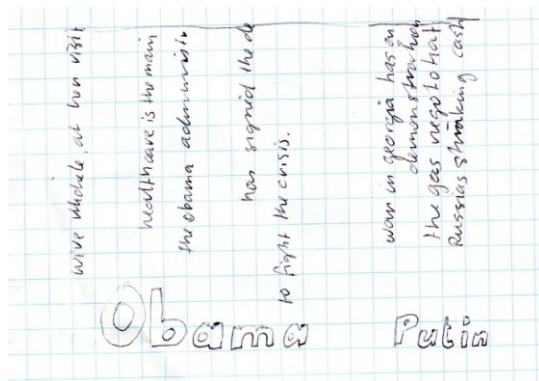 wive whole at hon visit
healthcare is the main
the obama administr
has signed the de
to fight the crisis.
war in georgia has on
demonstration
the gas negotiat
Russias shrinking cash
Obama Putin